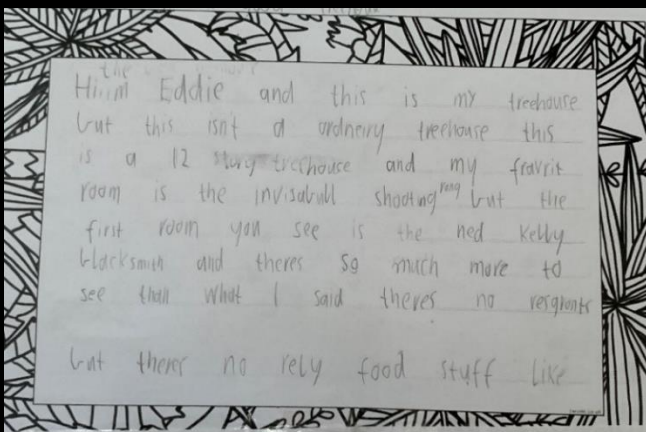 the
Hi im Eddie and this is my treehouse
but this isnt a ordneiry treehouse this
is a 12 story treehouse and my fravrit
room is the invisabull shooting reng but the
first room you see is the ned kelly
blacksmith and theres so much more to
see than what I said theres no resgronts
but theres no rely food stuff like